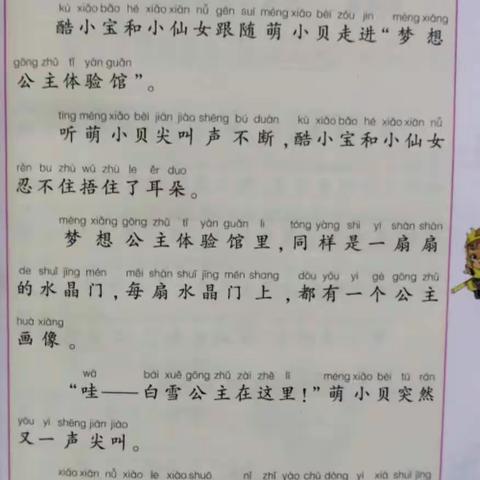 kù xiǎo bǎo hé xiǎo xiān nǚ gēn suí méng xiǎo bèi zǒu jìn mèng xiǎng
酷小宝和小仙女跟随萌小贝走进“梦想
gōng zhǔ tǐ yàn guǎn
公主体验馆”。
tīng méng xiǎo bèi jiān jiào shēng bú duàn kù xiǎo bǎo hé xiǎo xiān nǚ
听萌小贝尖叫声不断,酷小宝和小仙女
rěn bu zhù wǔ zhù le ěr duo
忍不住捂住了耳朵。
mèng xiǎng gōng zhǔ tǐ yàn guǎn li tóng yàng shì yí shàn shàn
梦想公主体验馆里,同样是一扇扇
de shuǐ jīng mén měi shàn shuǐ jīng mén shang dōu yǒu yí gè gōng zhǔ
的水晶门,每扇水晶门上,都有一个公主
huà xiàng
画像。
wā bái xuě gōng zhǔ zài zhè lǐ méng xiǎo bèi tū rán
“哇——白雪公主在这里!”萌小贝突然
yòu yì shēng jiān jiào
又一声尖叫。
xiǎo xiān nǚ xiào le xiào shuō nǐ zhǐ yào chù dòng yí xià shuǐ jīng